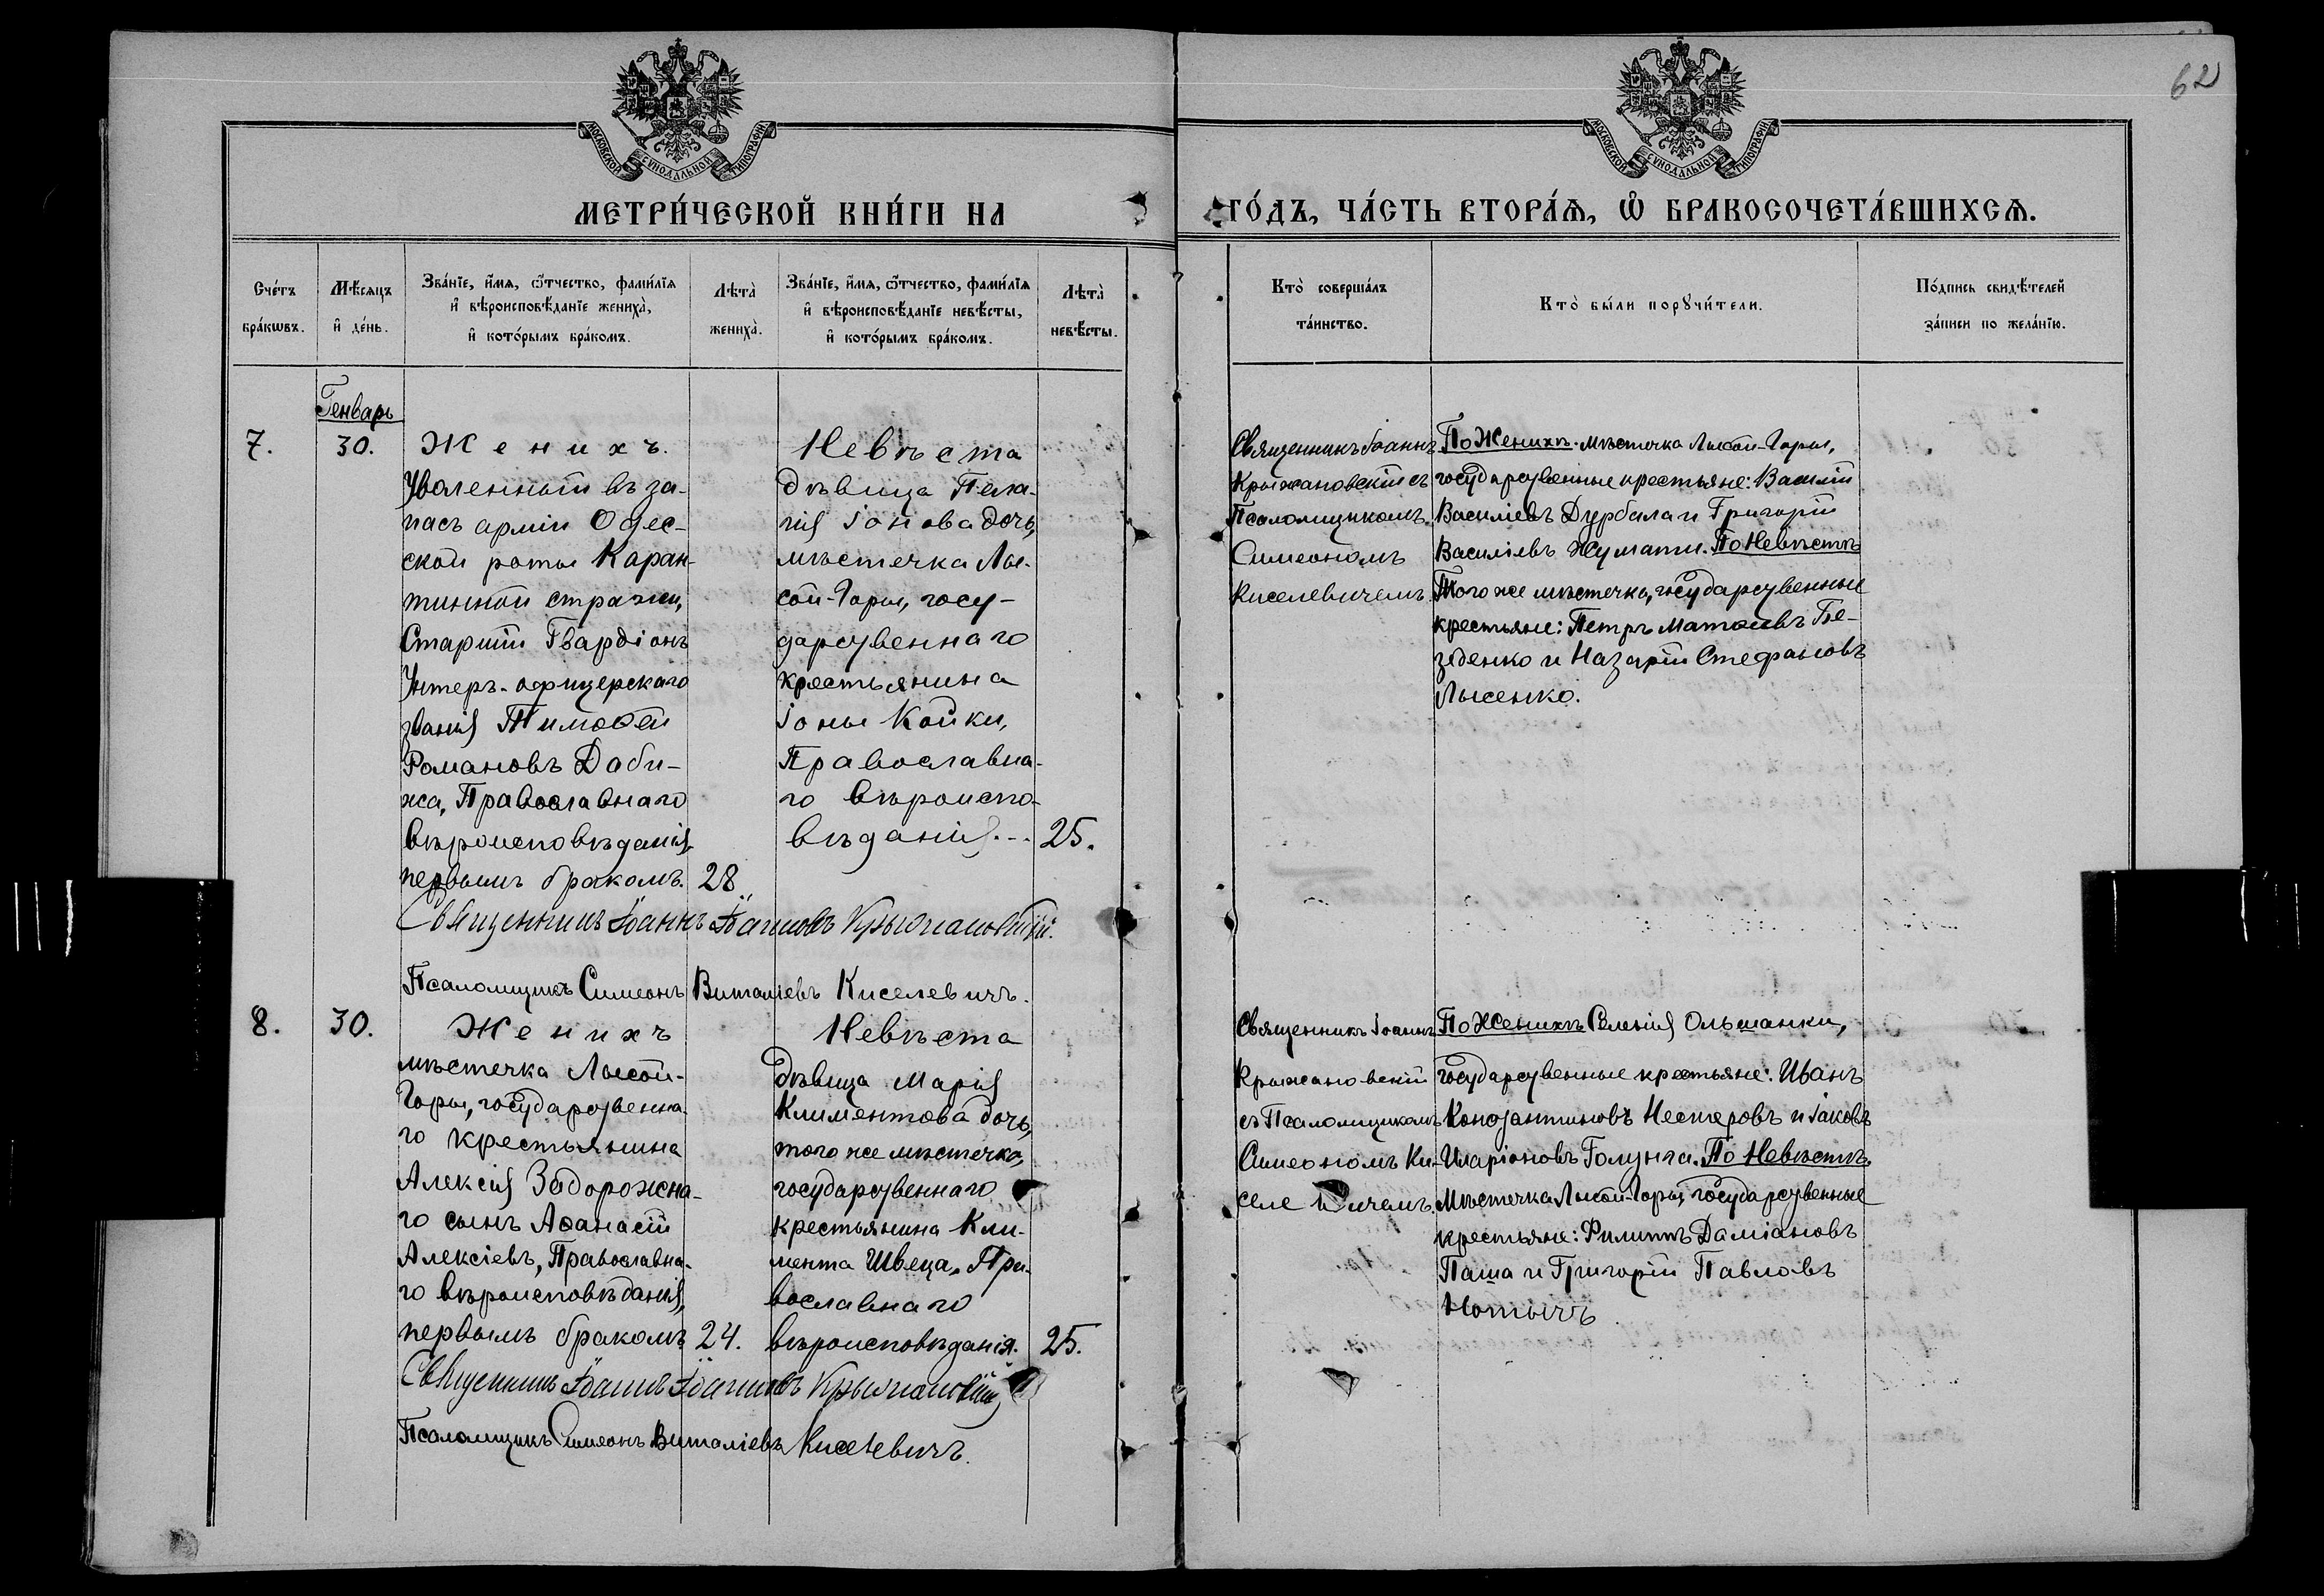 МОСКОВСКОЙ СѴНОДАЛЬНОЙ ТИПОГРАФІИ
МОСКОВСКОЙ СѴНОДАЛЬНОЙ ТИПОГРАФІИ
62
МЕТРИ́ЧЕСКОЙ КНИ́ГИ НА
ГО́ДЪ, ЧА́СТЬ ВТОРА́Ѧ, Ѽ БРАКОСОЧЕТА́ВШИХСѦ.
Сче́тъ
бра́кѡвъ.
Мѣ́сяцъ
и҆ де́нь.
Зва́нїе, и҆́мѧ, ѻ҆́тчество, фами́лїѧ
и҆ вѣроисповѣ́данїе жениха̀,
и҆ кото́рымъ бра́комъ.
Лѣта̀
жениха̀.
Зва́нїе, и҆́мѧ, ѻ҆́тчество, фами́лїѧ
и҆ вѣроисповѣ́данїе невѣ́сты,
и҆ кото́рымъ бра́комъ.
Лѣта̀
невѣ́сты.
Кто̀ соверша́лъ
та́инство.
Кто̀ бы́ли порꙋчи́тели.
По́дпись свидѣ́телей
за́писи по жела́нїю.
Генварь
7.
30.
Женихъ.
Уволенный въ за-
пасъ арміи Одес-
ской роты Каран-
тинной стражи,
Старшій Гвардіонъ
Унтеръ-офицерскаго
званія Тимоѳей
Романовъ Даби-
жа, Православнаго
вѣроисповѣданія,
первымъ бракомъ.
28
Невѣста
дѣвица Пела-
гія Іонова дочь,
мѣстечка Лы-
сой-Горы, госу-
дарственнаго
крестьянина
Іоны Койки,
Православна-
го вѣроиспо-
вѣданія.
25.
Священникъ Іоаннъ
Крыжановскій съ
Псаломщикомъ
Симеономъ
Киселевичемъ
По Женихѣ. мѣстечка Лысой-Горы,
государственные крестьяне: Василій
Василіевъ Дурбала и Григорій
Василіевъ Жумати. По Невѣстѣ
Того же мѣстечка, государственные
крестьяне: Петръ Матѳіевъ Бе-
зденко и Назарій Стефановъ
Лысенко.
Священникъ Іоаннъ Іоанновъ Крыжановскій.
Псаломщикъ Симеонъ Виталіевъ Киселевичъ.
8.
30.
Женихъ
мѣстечка Лысой-
Горы, государственна-
го крестьянина
Алексія Задорожна-
го сынъ Аѳанасій
Алексіевъ, Православна-
го вѣроисповѣданія,
первымъ бракомъ
24.
Невѣста
дѣвица Марія
Климентова дочь,
того же мѣстечка,
государственнаго
крестьянина Кли-
мента Швеца, Пра-
вославнаго
вѣроисповѣданія.
25.
Священникъ Іоаннъ
Крыжановскій
съ Псаломщикомъ
Симеономъ Ки-
селевичемъ.
По Женихѣ Селенія Ольшанки,
государственные крестьяне: Иванъ
Константиновъ Нестеровъ и Іаковъ
Иларіоновъ Голунга. По Невѣстѣ
Мѣстечка Лысой-Горы, государственные
крестьяне: Филиппъ Даміановъ
Паша и Григорій Павловъ
Нотычъ
Священникъ Іоаннъ Іоанновъ Крыжановскій
Псаломщикъ Симеонъ Виталіевъ Киселевичъ.